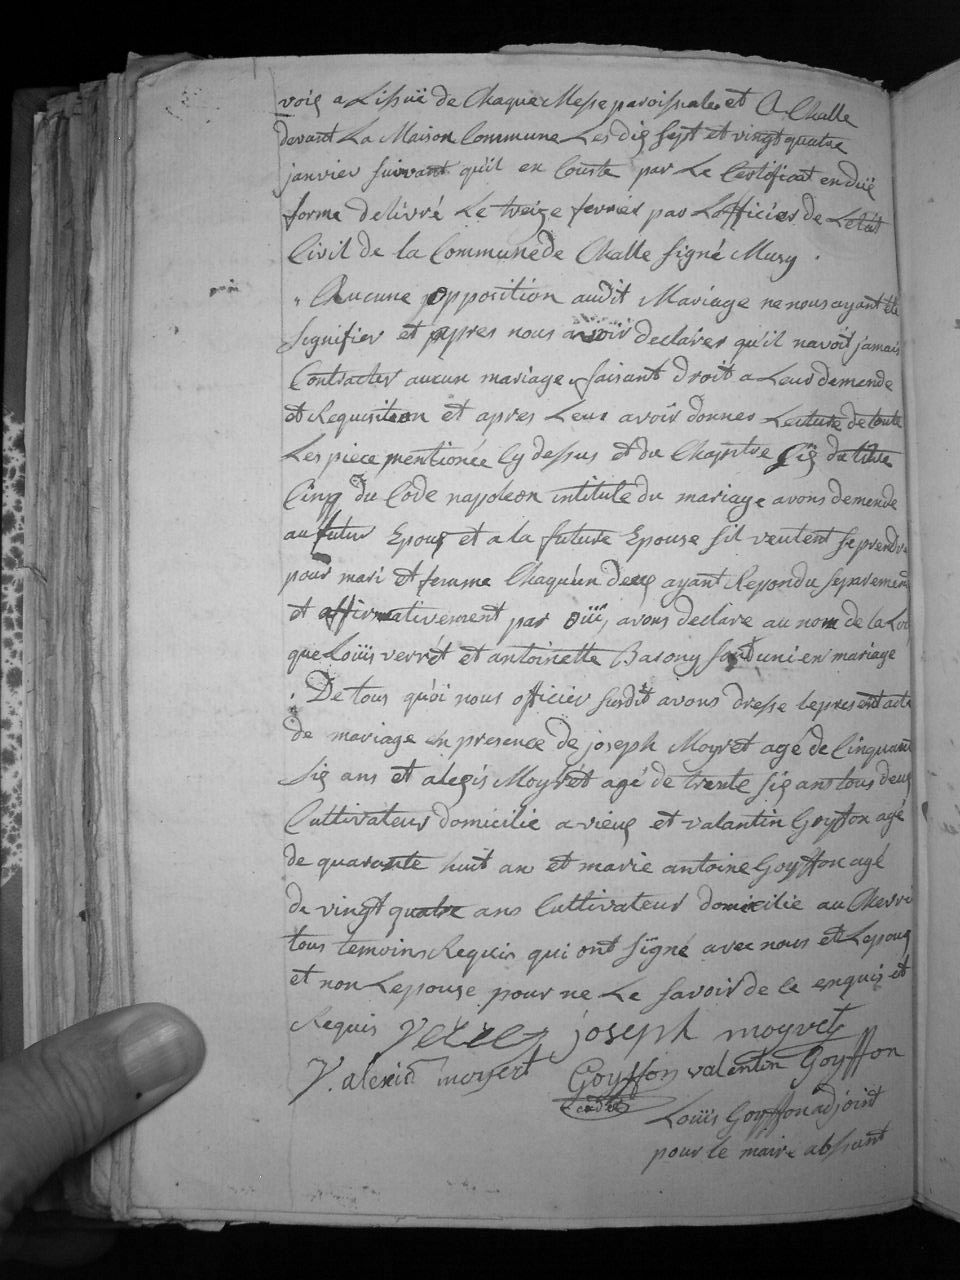 voix a Lissuë de Chaque Messe paroissiales et A Challe
devant La Maison Commune Les dix sept et vingt quatre
janvier suivant qu'il en Conste par Le Certificat en duë
forme delivré Le treize fevrier par Lofficier de Letat
Civil de la Commune de Challe signé Mury .
Aucune opposition audit Mariage ne nous ayant été
Signifier et apres nous avoir declarer qu'il navoit jamais
Contracter aucun mariage faisant droit a Leur demende
et Requisition et apres Leur avoir donner Lecture de toute
Les piece mentionée Cy dessus et du Chapitre Six du titre
Cinq du Code napoleon intitule du mariage avons demende
au futur Epoux et a la future Epouse sil veulent se prendre
pour mari et femme Chaqu'un deux ayant Repondu separement
et affirmativement par oüi, avons declare au nom de la Loi
que Loüis verrêt et antoinette Barony sont uni en mariage
De tous qu'oi nous officier susdit avons dresse le present acte
de mariage en presence de joseph Moyret agé de Cinquante
Six ans et alexis Moyret agé de trente six ans tous deux
Cultivateur domicilie a vieux et valantin Goyffon agé
de quarante huit an et marie antoine Goyffon agé
de vingt quatre ans Cultivateur domicilie au Chevri
tous temoins Requis qui ont signé avec nous et Lepoux
et non Lepouse pour ne Le savoir de ce enquis et
Requis joseph moyret
alexis moyret Goyffon valentin Goyffon
cadet
Loüis Goyffon adjoint
pour le maire absant